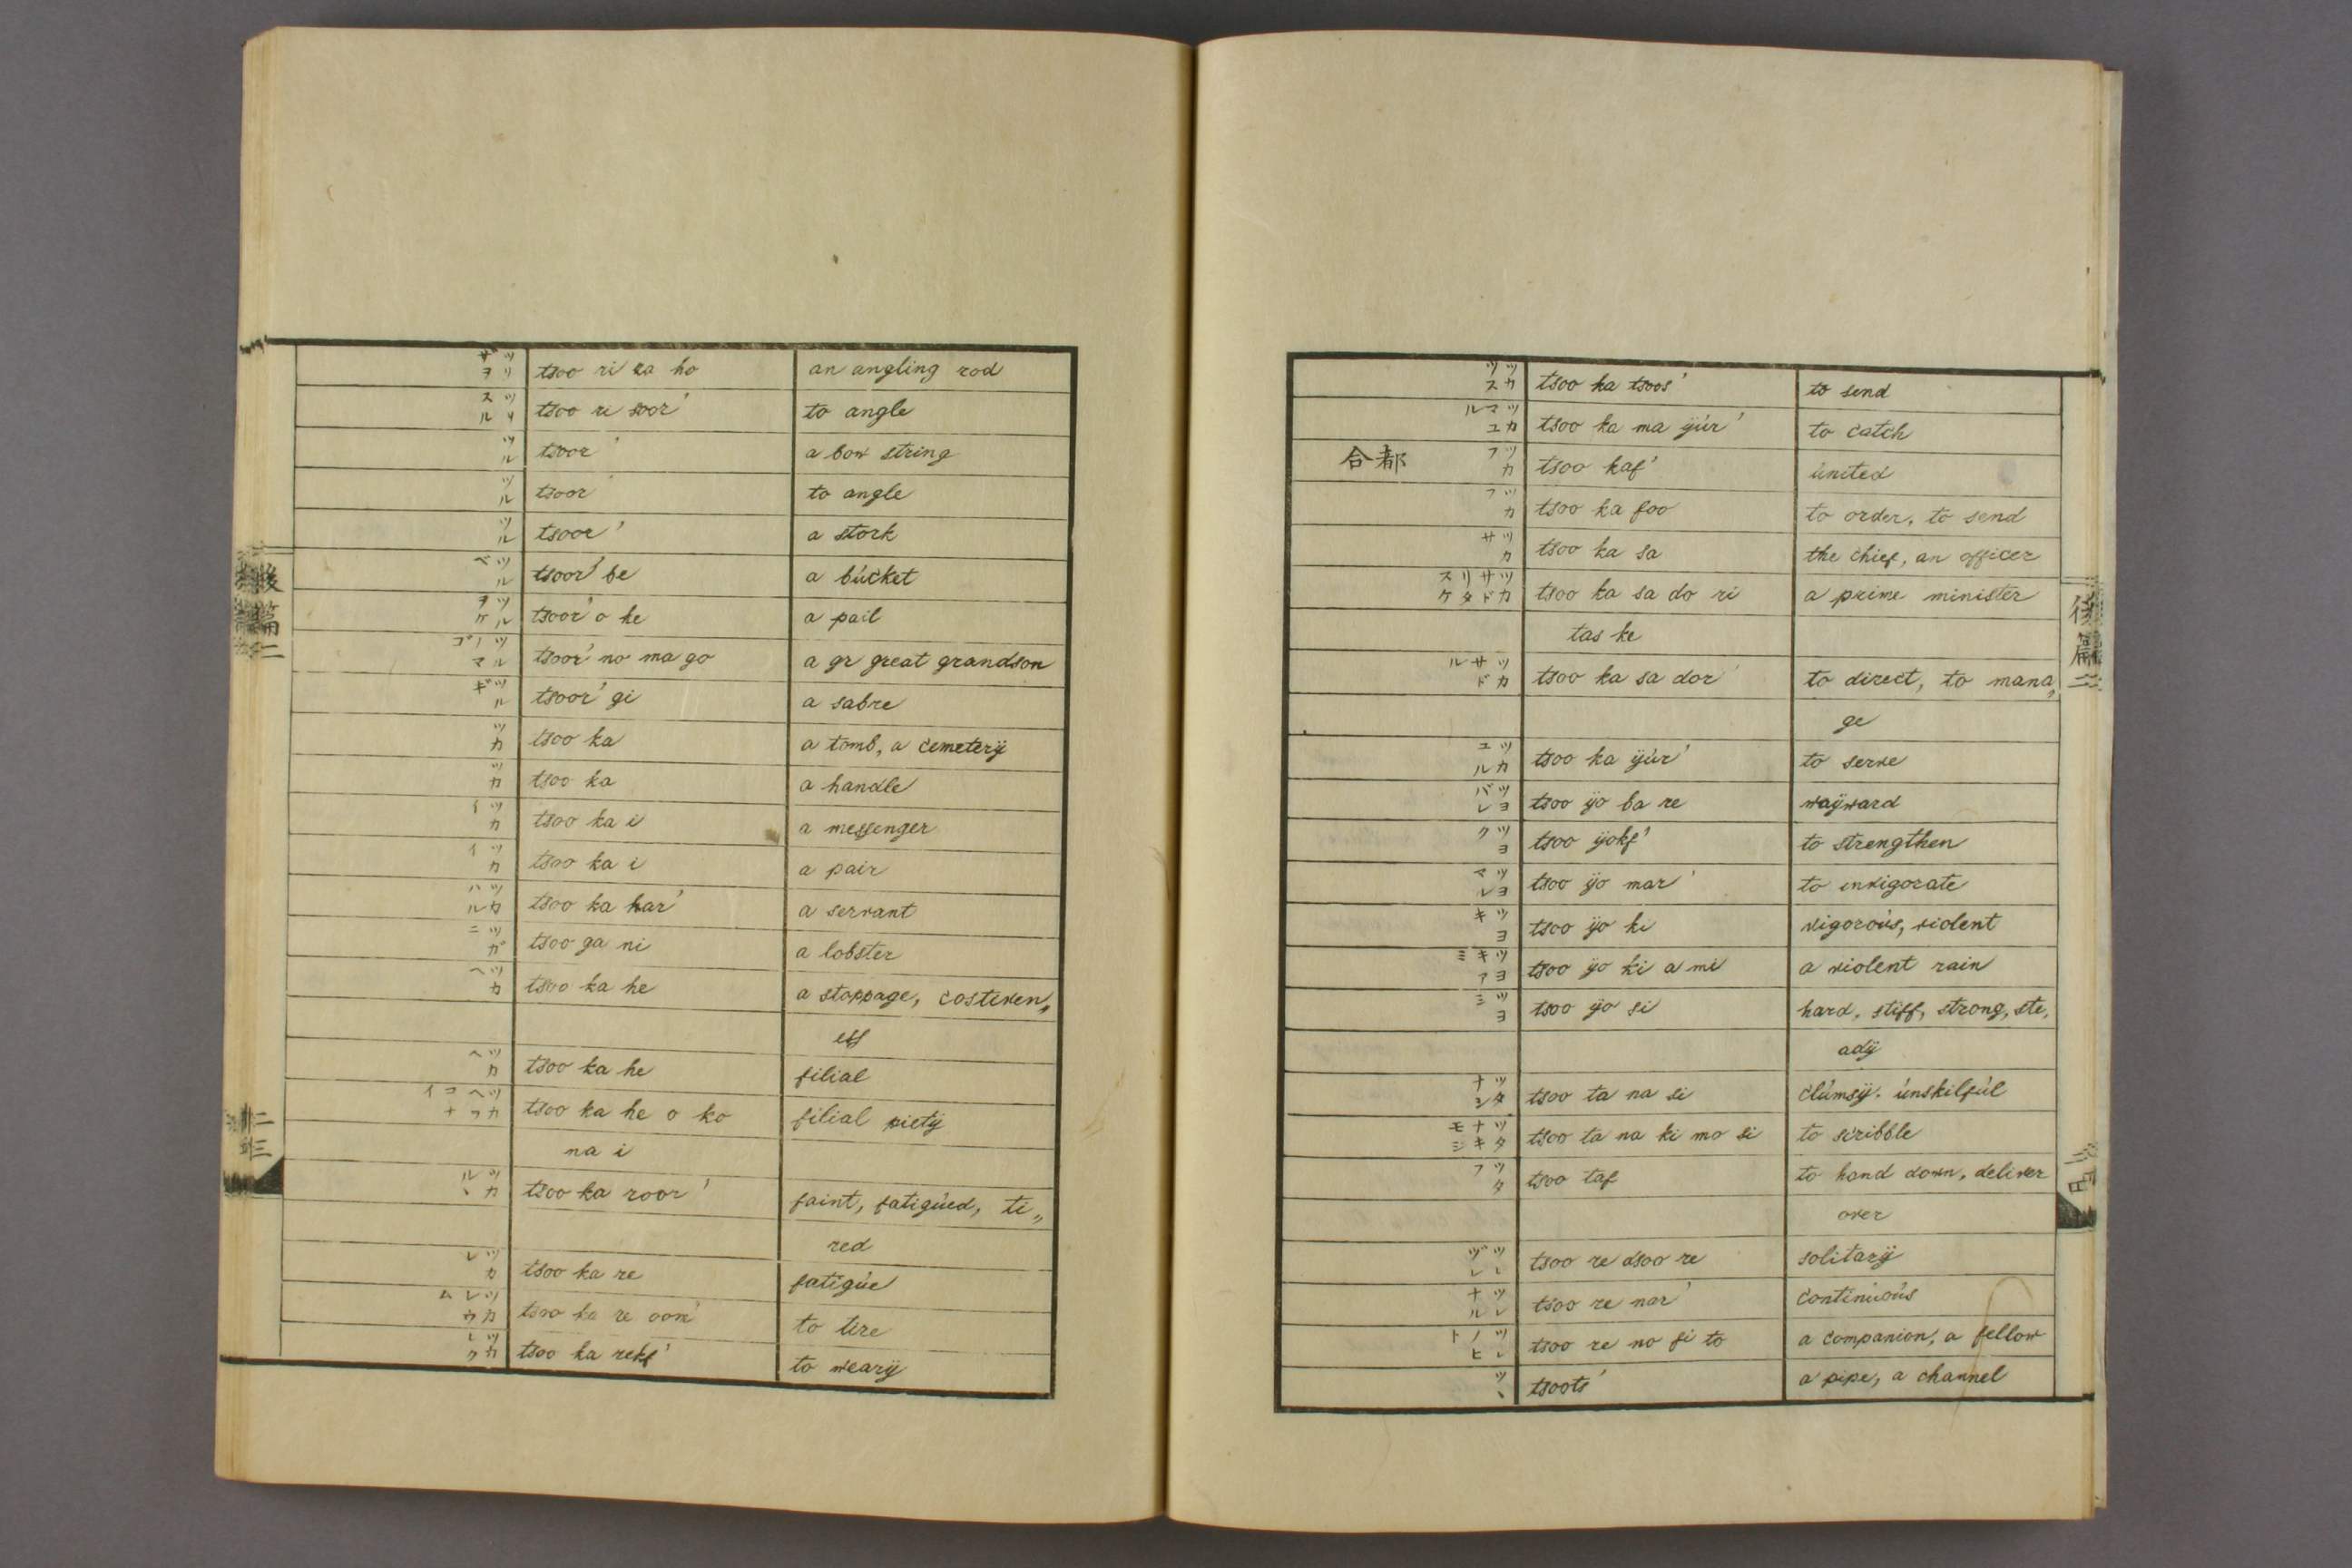 ツリザヲ tsoo ri za ho an angling rod
ツリスル tsoo ri soor' to angle
ツル tsoor' a bow string
ツル tsoor' to angle
ツル tsoor' a stork
ツルベ tsoor' be a búcket
ツルヲケ tsoor' o ke a pail
ツルノマゴ tsoor' no ma go a gr great grandson
ツルギ tsoor' gi a sabre
ツカ tsoo ka a tomb, a cemeterÿ
ツカ tsoo ka a handle
ツカイ tsoo ka i a messenger
ツカイ tsoo ka i a pair
ツカハル tsoo ka har' a servant
ツガニ tsoo ga ni a lobster
ツカヘ tsoo ka he a stoppage, costiven„
ess
ツカヘ tsoo ka he filial
ツカヘヲコナイ tsoo ka he o ko filial pietÿ
na i
ツカルヽ tsoo ka roor' faint, fatigúed, ti„
red
ツカレ tsoo ka re fatigúe
ツカレウム tsoo ka re oom' to tire
ツカレク tsoo ka rekf' to wearÿ
後篇二
ツカツス tsoo ka tsoos' to send
ツカマユル tsoo ka ma ÿúr' to catch
都合 ツカフ tsoo kaf' únited
ツカフ tsoo ka foo to order, to send
ツカサ tsoo ka sa the chief, an officer
ツカサドリタスケ tsoo ka sa do ri a prime minister
tas ke
ツカサドル tsoo ka sa dor' to direct, to mana„
ge
ツカユル tsoo ka ÿúr' to serve
ツヨバレ tsoo ÿo ba re waÿward
ツヨク tsoo ÿokf' to strengthen
ツヨマレ tsoo ÿo mar' to invigorate
ツヨキ tsoo ÿo ki vigoroús, violent
ツヨキアミ tsoo ÿo ki a mi a violent rain
ツヨシ tsoo ÿo si hard, stiff, strong, ste„
adÿ
ツタナシ tsoo ta na si clúmsÿ. únskilfúl
ツタナキモジ tsoo ta na ki mo si to scribble
ツタフ tsoo taf to hand down, deliver
over
ツレヅレ tsoo re dsoo re solitarÿ
ツレナル tsoo re nar' continúoús
ツレノヒト tsoo re no fi to a companion, a fellow
ツヽ tsoots' a pipe, a channel
後篇二